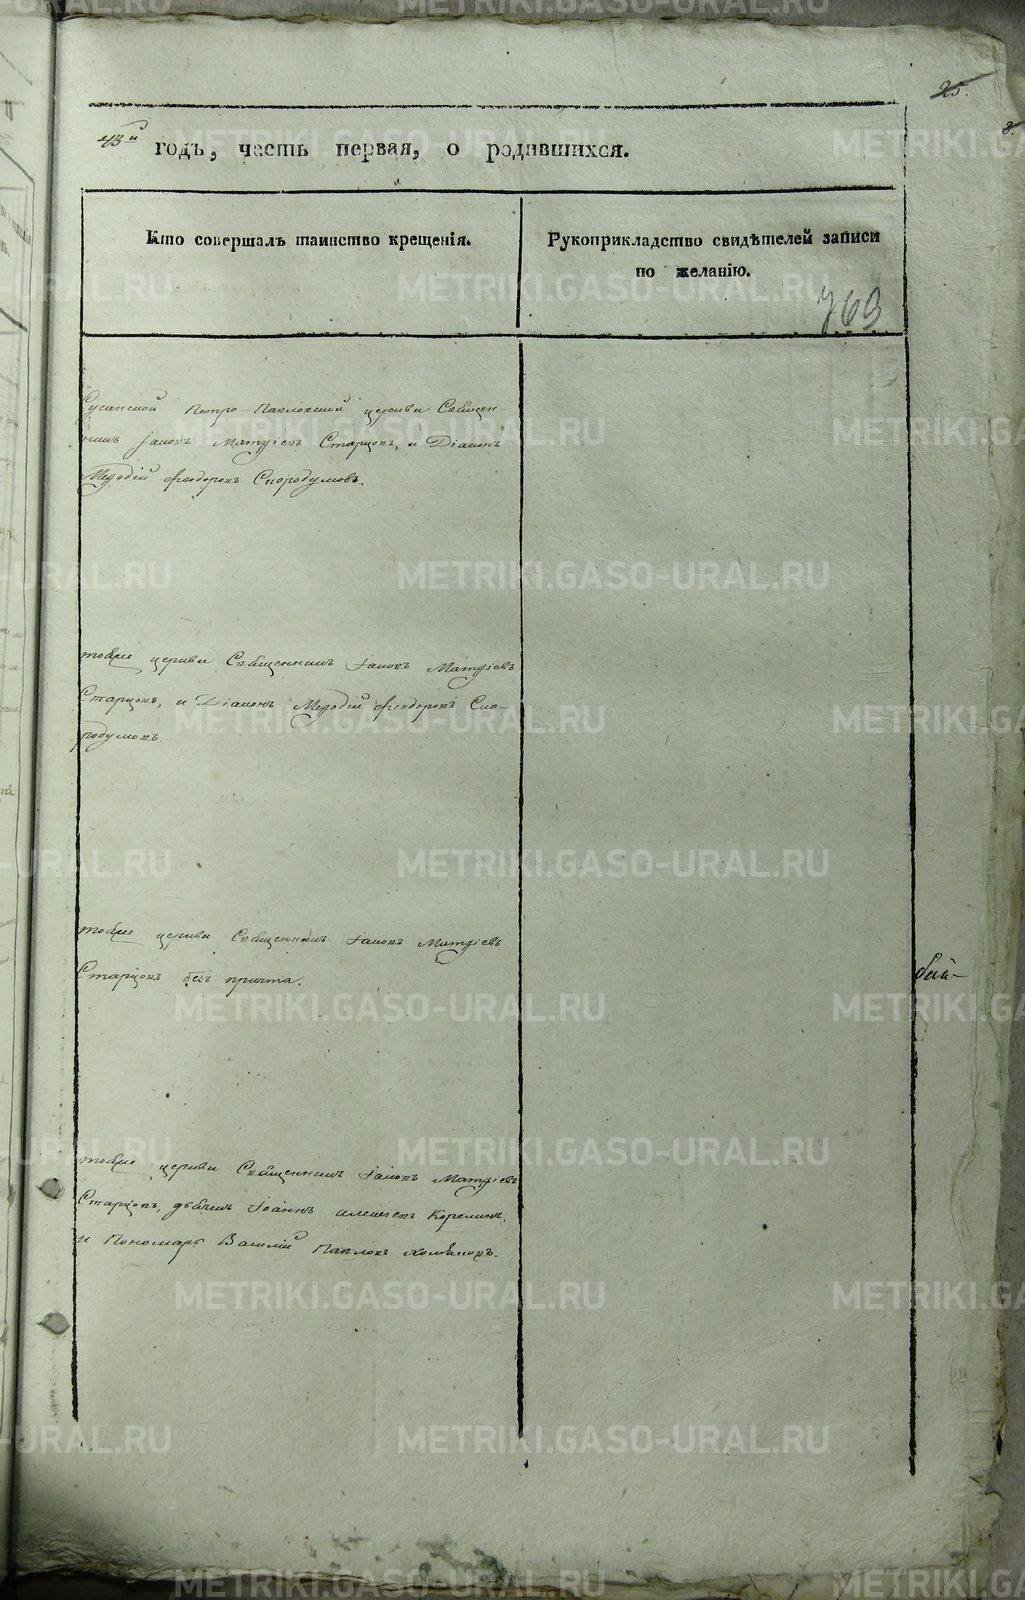 25.
8
43й годъ, часть первая, о родившихся.
Кто совершалъ таинство крещенія.
Рукоприкладство свидѣтелей записи
по желанію.
769
Сусанской Петро-Павловской церкви Священ-
никъ Іаковъ Матѳіевъ Старцовъ, и Діаконъ
Меѳодій Ѳеодоровъ Скородумовъ.
тойже церкви Священникъ Іаковъ Матѳіевъ
Старцовъ, и Діаконъ Меѳодій Ѳеодоровъ Ско-
родумовъ.
тойже церкви Священникъ Іаковъ Матѳіевъ
Старцовъ безъ причта.
тойже церкви Священникъ Іаковъ Матѳіевъ
Старцовъ, дьячекъ Іоаннъ Корелинъ,
и Пономарь Василій Павловъ
METRIKI.GASO-URAL.RU